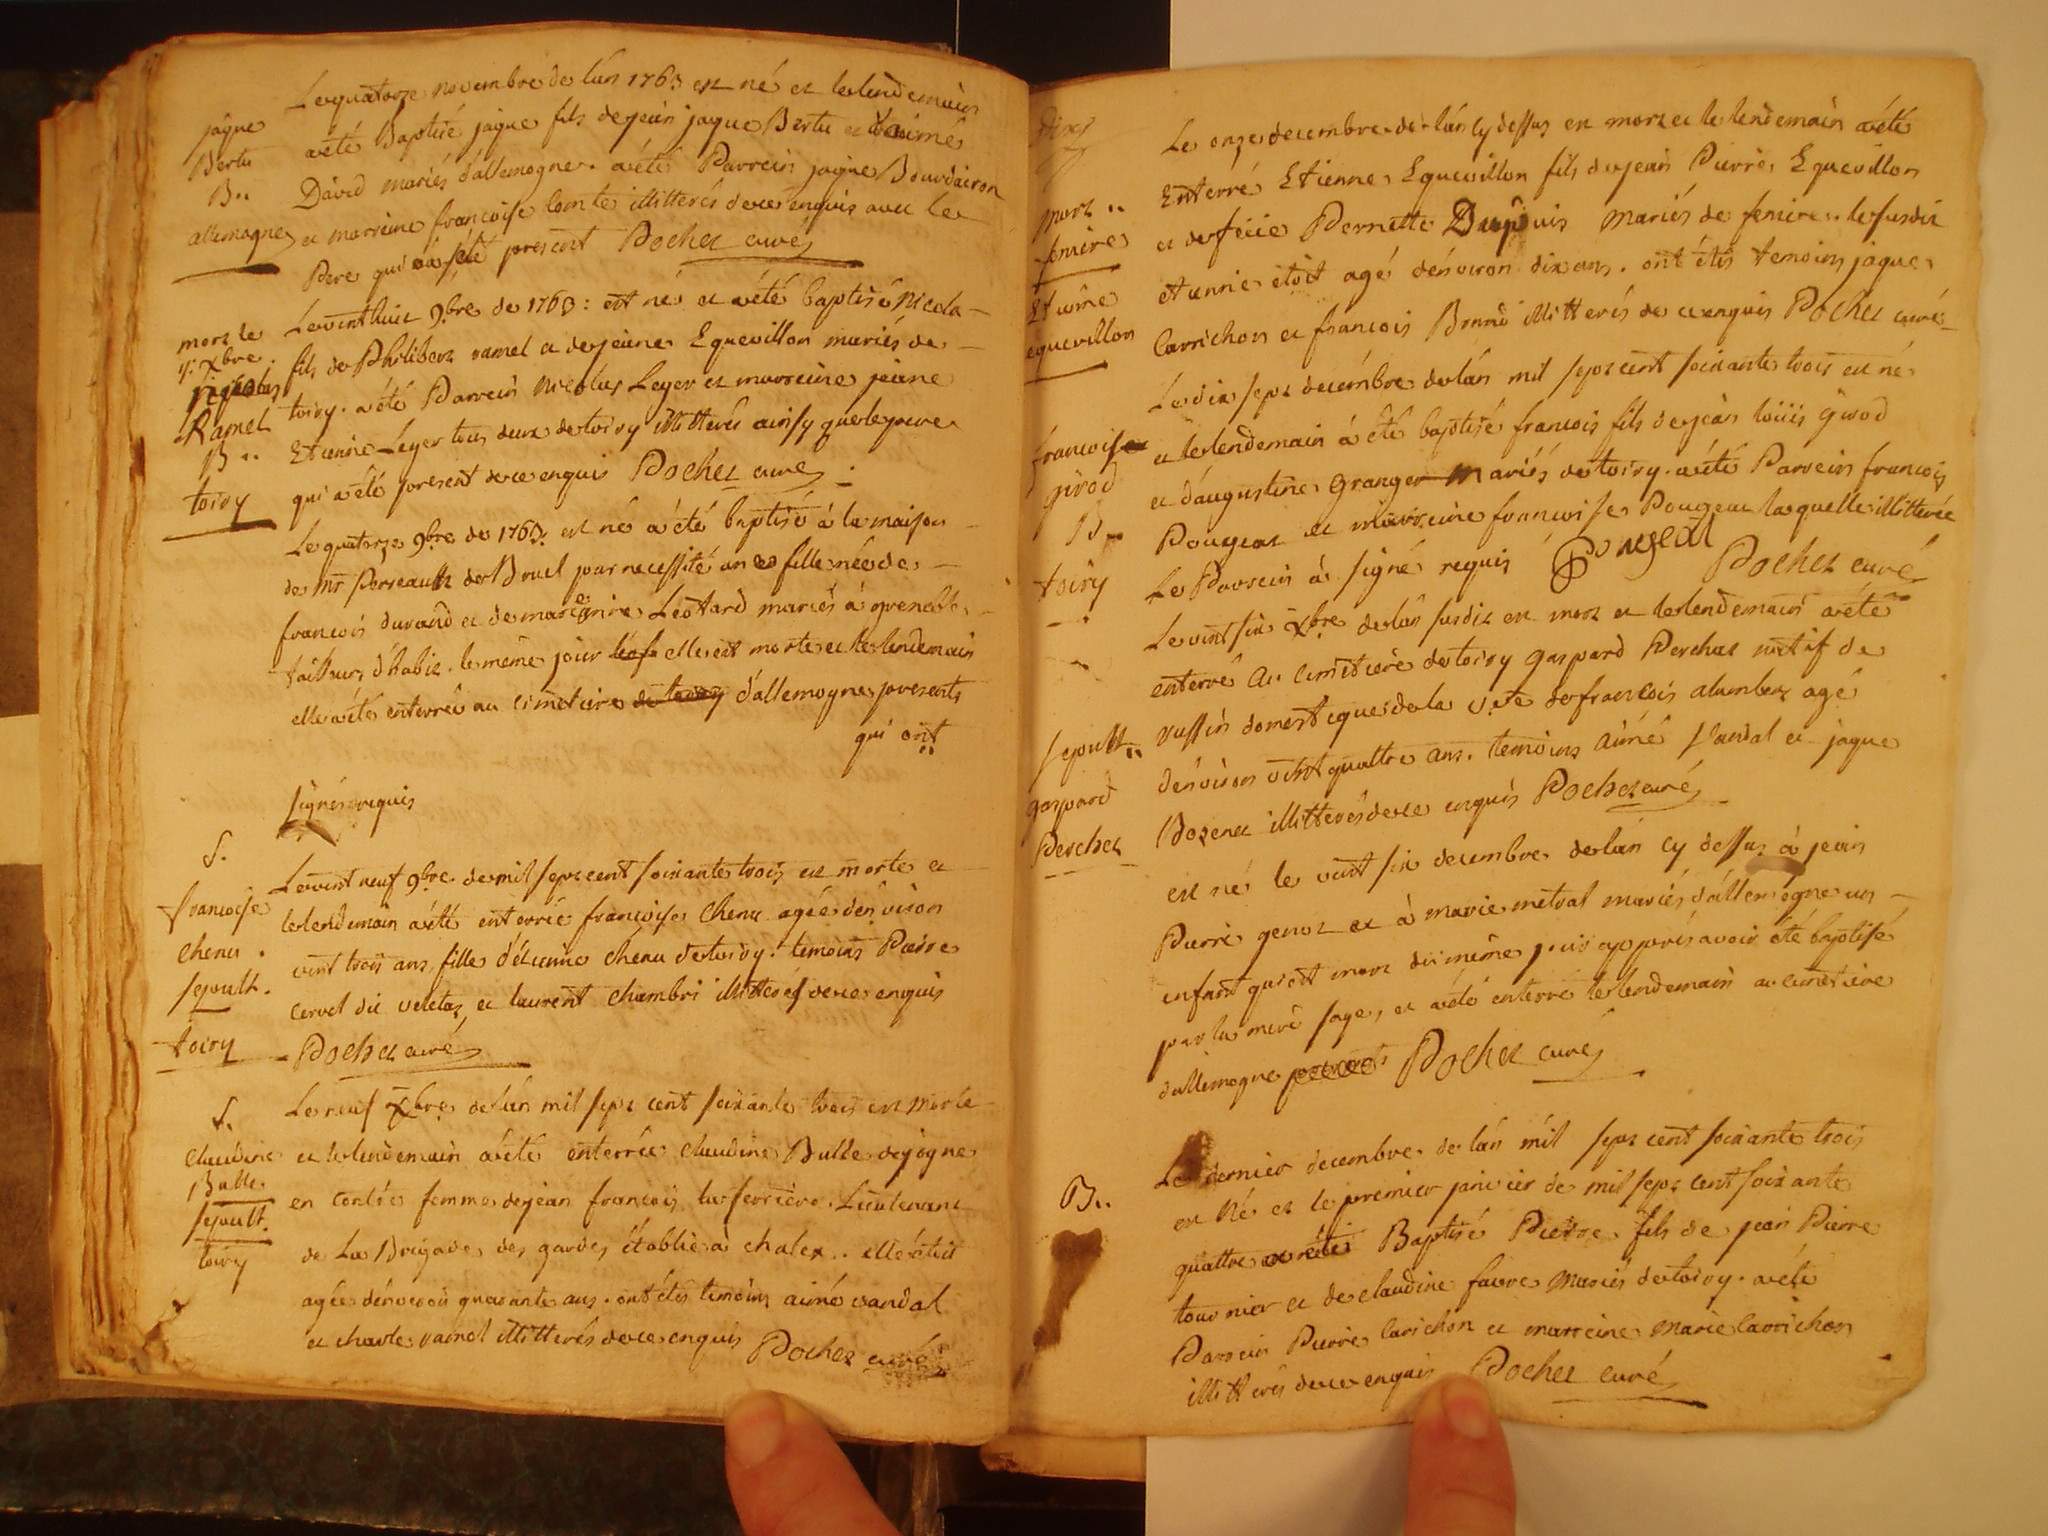 Le quatorze novembre de lán 1763 est né et le lendemain
jâque
Bertu
B..
allemogne
a été Baptisé jâque fils de jeân jaque Bertu et d'aimé
David mariés d'allemogne. a été Parrein jaque Bourdairon
et marreine francoise Comte illitterés de ce enquis avec le
Pere qui a été present Pochet curé
mort le
Nicolas
Ramel
B..
toiry
Le vint huit 9bre de 1763: est né et a été baptisé Nicola
fils de Philibert ramel et de jeane Equevillon mariés de
toiry. a été Parrein Nicolas Leger et marreine jeane
Etienne Leger tous deux de toiry illitterés ainsy que le pere
qui a été present de ce enquis Pochet curé
Le quatorze 9bre de 1763. est né a été baptisé à la maison
de Mr Perseault de Bruel par necessité une fille née de
francois durand et de Leotard mariés à grenoble
tailleur d'habit. le même jour elle est morte et le lendemain
elle a été enterrée au cimetiere de toiry d'allemogne presents
qui ont
signés requis
S.
francoise
chenu.
sepult.
toiry
Le vint neuf 9bre de mil sept cent soixante trois est morte et
le lendemain a été enterrée francoise Chenu agée dénviron
vint trois ans fille d'étienne chenu de toiry. temoins Pierre
Cervet dit veletaz et laurent Chambri illitterés de ce enquis
Pochet curé
S.
Claudine
Bulle
sepult.
toiry
Le neuf Xbre de lán mil sept cent soixante trois est morte
et le lendemain a été enterrée claudine Bulle de jogne
en Contée femme de jean francois la ferriere. Lieutenant
de La Brigade des gardes établie à chalex.. elle étoit
agée dénviron quarante ans. ont étés temoins aimé vandal
et charle ramel illitterés de ce enquis Pochet curé
mort..
fenire
Etienne
equevillon
Le onze decembre de lán cy dessus est mort et le lendemain a été
Enterré Etienne Equevillon fils de jean Pierre Equevillon
et de feüe Pernette Dupuis mariés de fenire.. le susdit
etienne étoit agé dénviron dix ans. ont étés temoins jâque
Carrichon et francois Bonnd illitterés de ce enquis Pochet curé
francoise
girod
B..
toiry
Le dix sept decembre de lán mil sept cent soixante trois est né
et le lendemain à été baptisé francois fils de jeân loüis girod
et d'augustine granger Mariés de toiry. a été Parrein francois
Pougeat et marreine francoise Pougeat laquelle illitterée
Le Parrein à signé requis Pougeat Pochet curé
sepult..
gaspard
Perchet
Le vint six Xbre de lán susdit est mort et le lendemain a été
enterré au cimetiere de toiry gaspard Perchet natif de
russin domestique de la v.ve de francois alambert agé
dénviron vint quattre ans. temoins aimé vandal et jaque
Bozenet illitterés de ce enquis Pochet curé
est né le vint six decembre de lán cy dessus à jean
Pierre genot et à marie metral mariés d'allemogne un
enfant qui est mort du même jour apprés avoir été baptisé
par la mere sage, et a été enterré le lendemain au cimetiere
d'allemogne Pochet curé
B..
Le dernier decembre de lán mil sept cent soixante trois
est né et le premier janvier de mil sept cent soixante
quattre a été Baptisé Pierre fils de jean Pierre
tournier et de claudine favre Mariés de toiry. a été
Parrein Pierre Carichon et marreine Marie Carrichon
illitterés de ce enquis Pochet curé